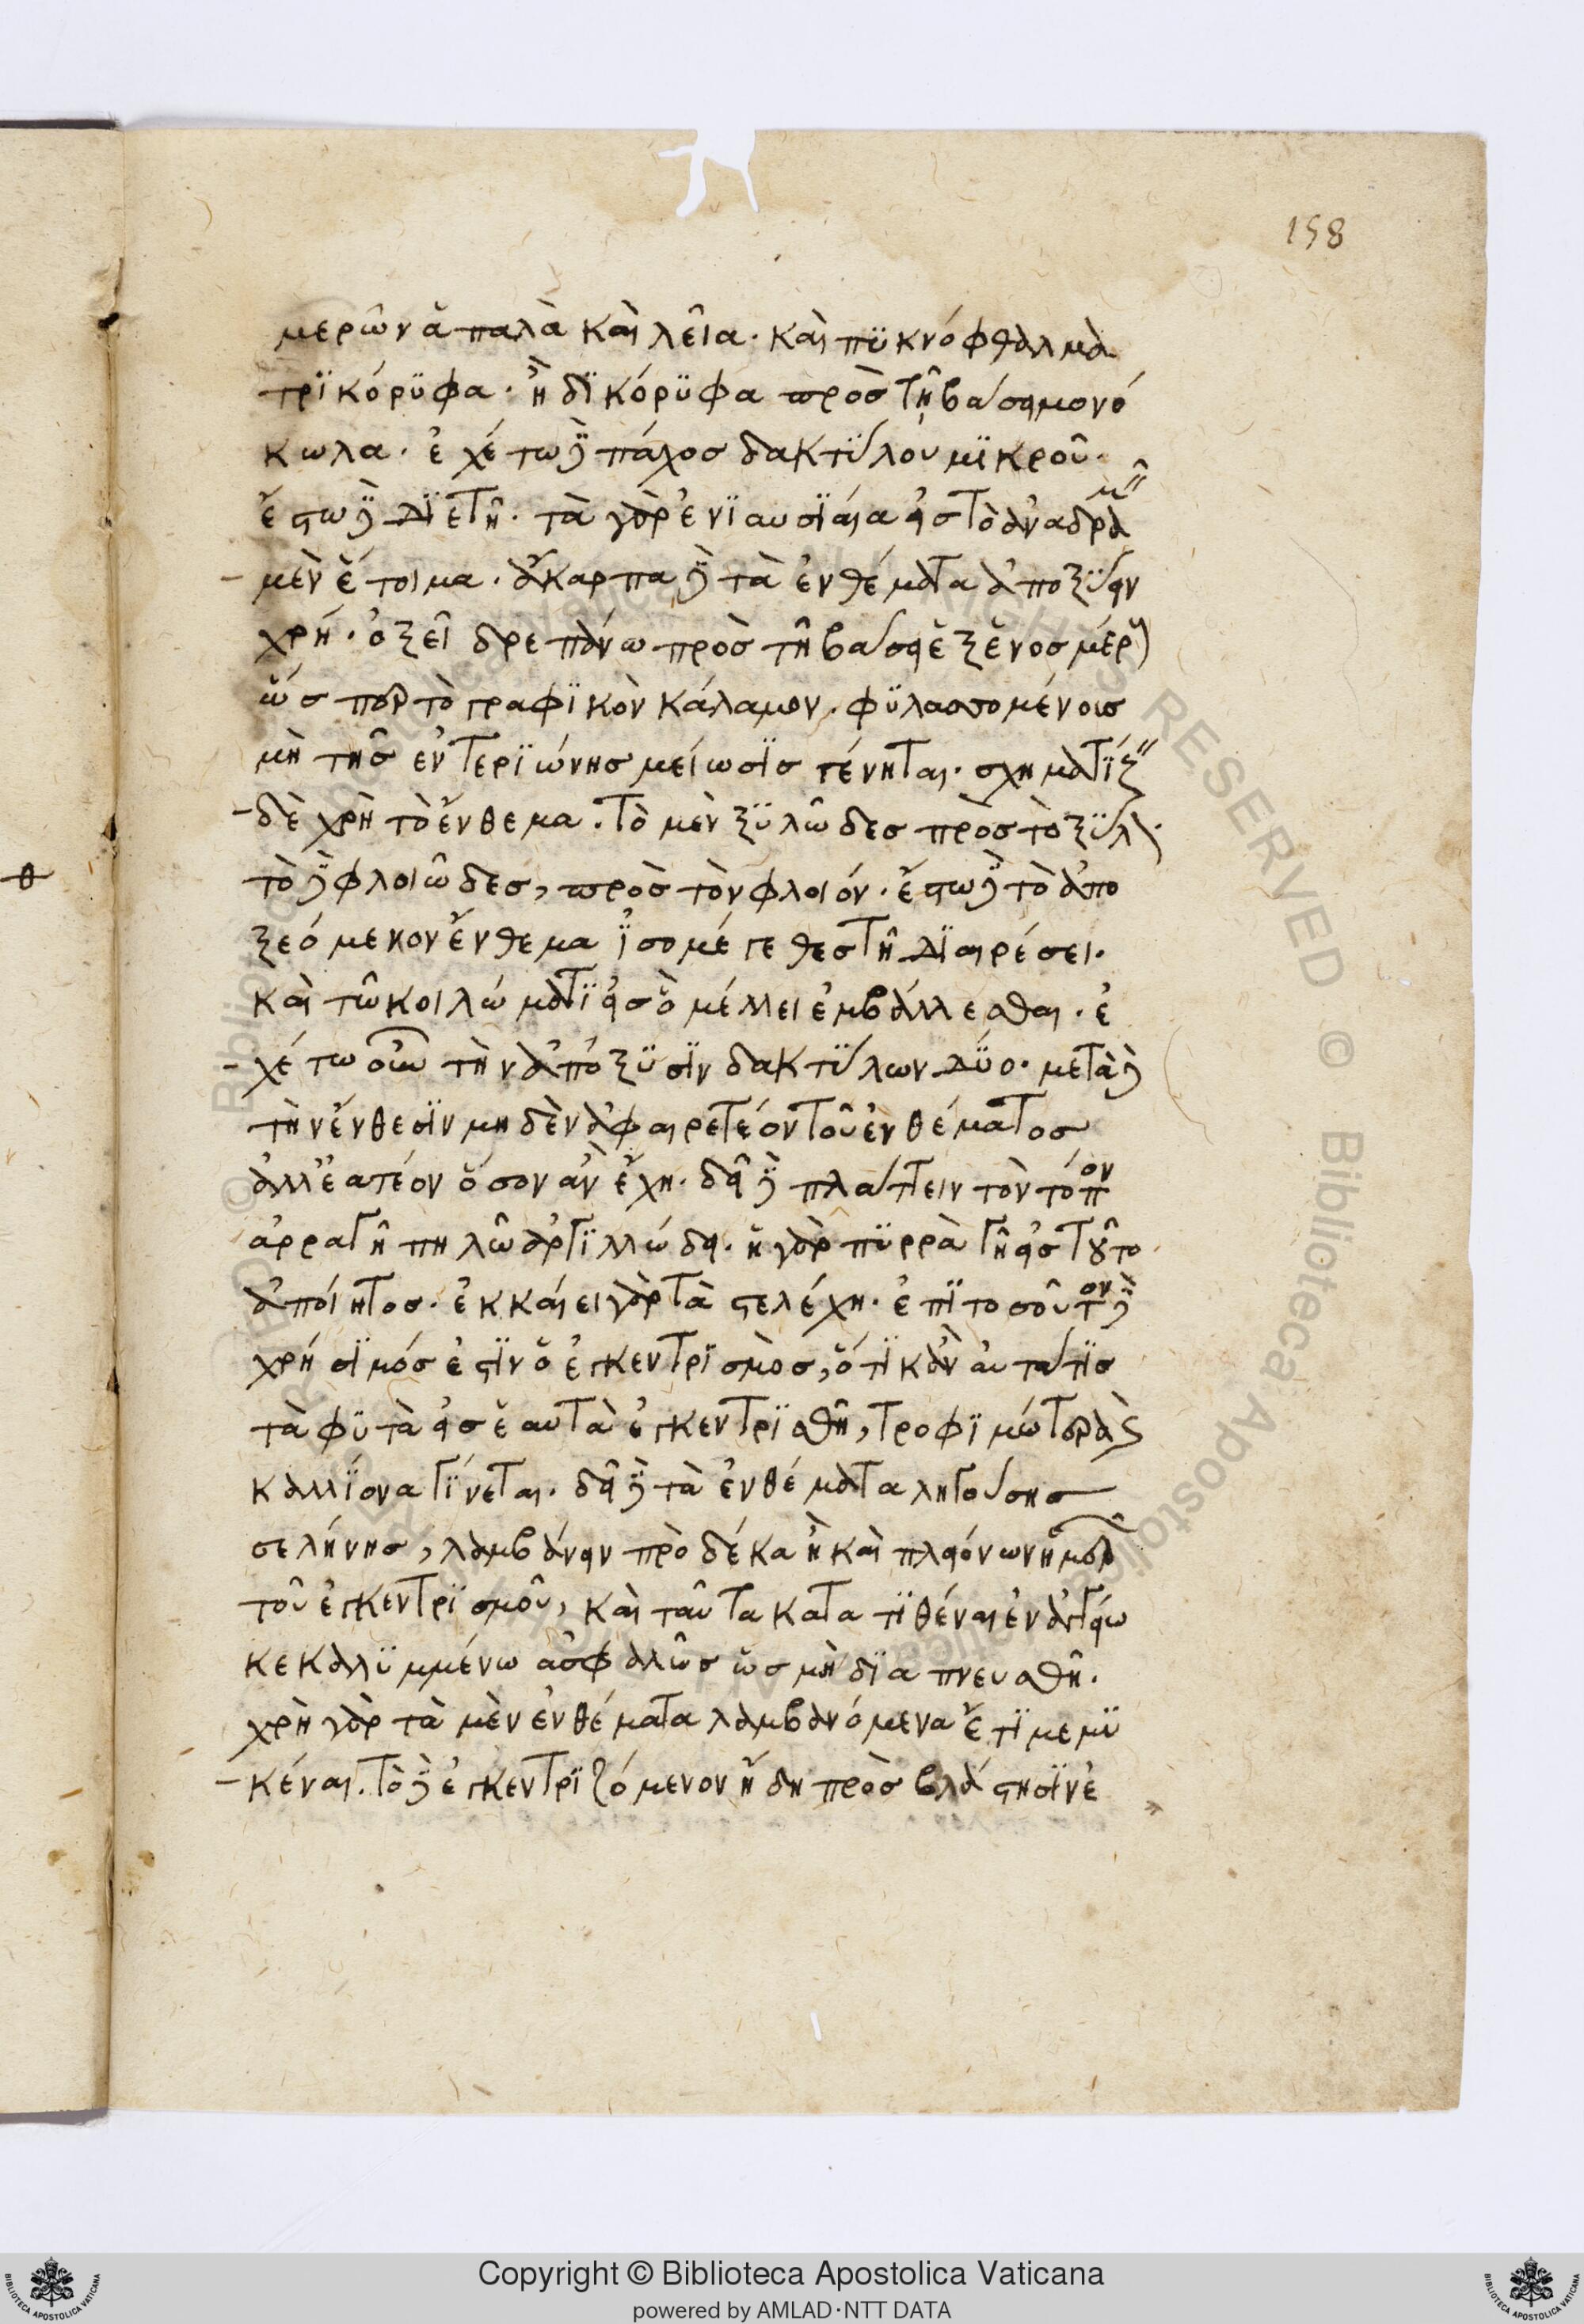 158
μερῶν ἁπαλὰ καὶ λεῖα· καὶ πϋκνόφθαλμα
τρϊκόρϋφα· ἢ δϊκόρϋφα πρὸσ τῆ βάσει μονό
κωλα· ἐχέτω δὲ πάχοσ δακτΰλου μϊκροῦ·
ἔστω δὲ δϊετῆ· τὰ γὰρ ἐνϊαυσϊαῖα εἰσ τὸ ἀναδρα
μεῖν ἕτοιμα· ἄκαρπα δὲ τὰ ἐνθέματα ἀποξΰειν
χρή· ὀξεῖ δρεπάνω πρὸσ τῆ βάσει ἐξ ἑνοσ μέρουσ
ὥσπερ τὸ γραφϊκὸν κάλαμον· φϋλασσομένοισ
μὴ τῆσ ἐντερϊώνησ μείωσϊσ γένηται· σχηματΐζειν
δὲ χρὴ τὸ ἔνθεμα· τὸ μὲν ξϋλῶδεσ πρὸσ τὸ ξΰλον·
τὸ δὲ φλοιῶδεσ, πρὸσ τὸν φλοιόν· ἔστω δὲ τὸ ἀπο
ξεόμενον ἔνθεμα ϊσομέγεθεσ τῆ δϊαιρέσει·
καὶ τῶ κοιλώματϊ εἰσ ὃ μέλλει ἐμβάλλεσθαι· ἐ
χέτω οὖν τὴν ἀπόξϋσϊν δακτΰλων δΰο· μετὰ δὲ
τὴν ἔνθεσϊν μηδὲν ἀφαιρετέον τοῦ ἐνθέματοσ
ἀλλ' ἐατέον ὅσον ἂν ἔχη· δεῖ δὲ πλάττειν τὸν τόπον
ἀρραγῆ πηλῶ ἀργϊλλώδει· ἡ γὰρ πϋρρὰ γῆ εἰσ τοῦτο
ἀποίητοσ· ἐκκαίει γὰρ τὰ στελέχη· ἐπϊτοσοῦτον δὲ
χρήσϊμόσ ἐστϊν ὁ ἐγκεντρϊσμὸσ, ὅτϊ κἂν αὐτά τϊσ
τὰ φϋτὰ εἰσ ἑαυτὰ ἐγκεντρϊσθῆ, τροφϊμώτερα καὶ
καλλΐονα γΐνεται· δεῖ δὲ τὰ ἐνθέματα ληγούσησ
σελήνησ, λαμβάνειν πρὸ δέκα ἢ καὶ πλειόνων ἡμερῶν
τοῦ ἐγκεντρϊσμοῦ, καὶ ταῦτα κατατϊθέναι ἐν ἀγγείω
κεκαλϋμμένω ἀσφαλῶσ ὡσ μὴ δϊαπνευσθῆ·
χρὴ γὰρ τὰ μὲν ἐνθέματα λαμβανόμενα ἔτϊ μεμϋ
κέναι· τὸ δὲ ἐγκεντρϊζόμενον ἤδη πρὸσ βλάστησϊν ἐ
Copyright © Biblioteca Apostolica Vaticana
powered by AMLAD·NTT DATA